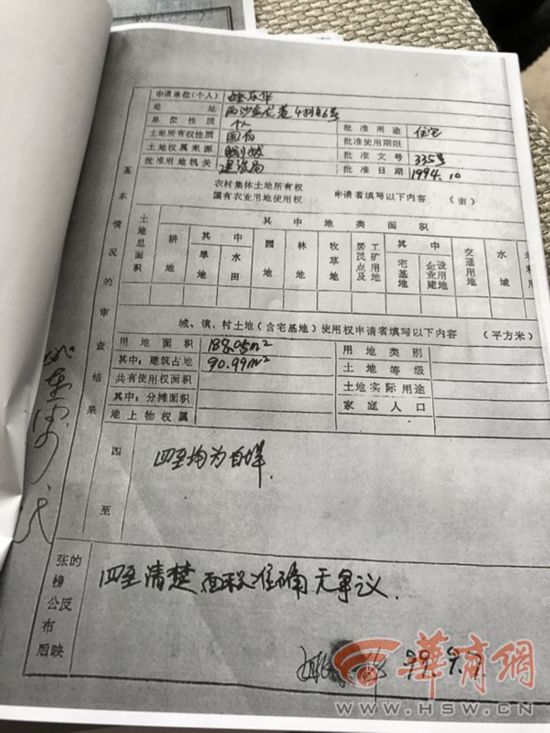 申请单位(个人)
地址
单位性质 个人 批准用途 住宅
土地所有权性质 国有 批准使用期限
土地权属来源 批准文号 335号
批准用地机关 建设局 批准日期 1994.10
农村集体土地所有权
国有农业用地使用权 申请者填写以下内容 (亩)
基本情况的审查结果
土地总面积 其中地类面积
耕地 其中 旱地 水田 园地 林地 牧草地 居民点及工矿用地 其中 宅基地 企业建设用地 交通用地 水域
城、镇、村土地(含宅基地)使用权申请者填写以下内容 (平方米)
用地面积 188.05m² 用地类别
其中:建筑占地 90.99m² 土地等级
共有使用权面积 土地实际用途
其中:分摊面积 家庭人口
地上物权属
四至 四至均为自墙.
张榜公布后的反映 四至清楚 面积准确 无争议.
99.9.7
華商網
WWW.HSW.CN